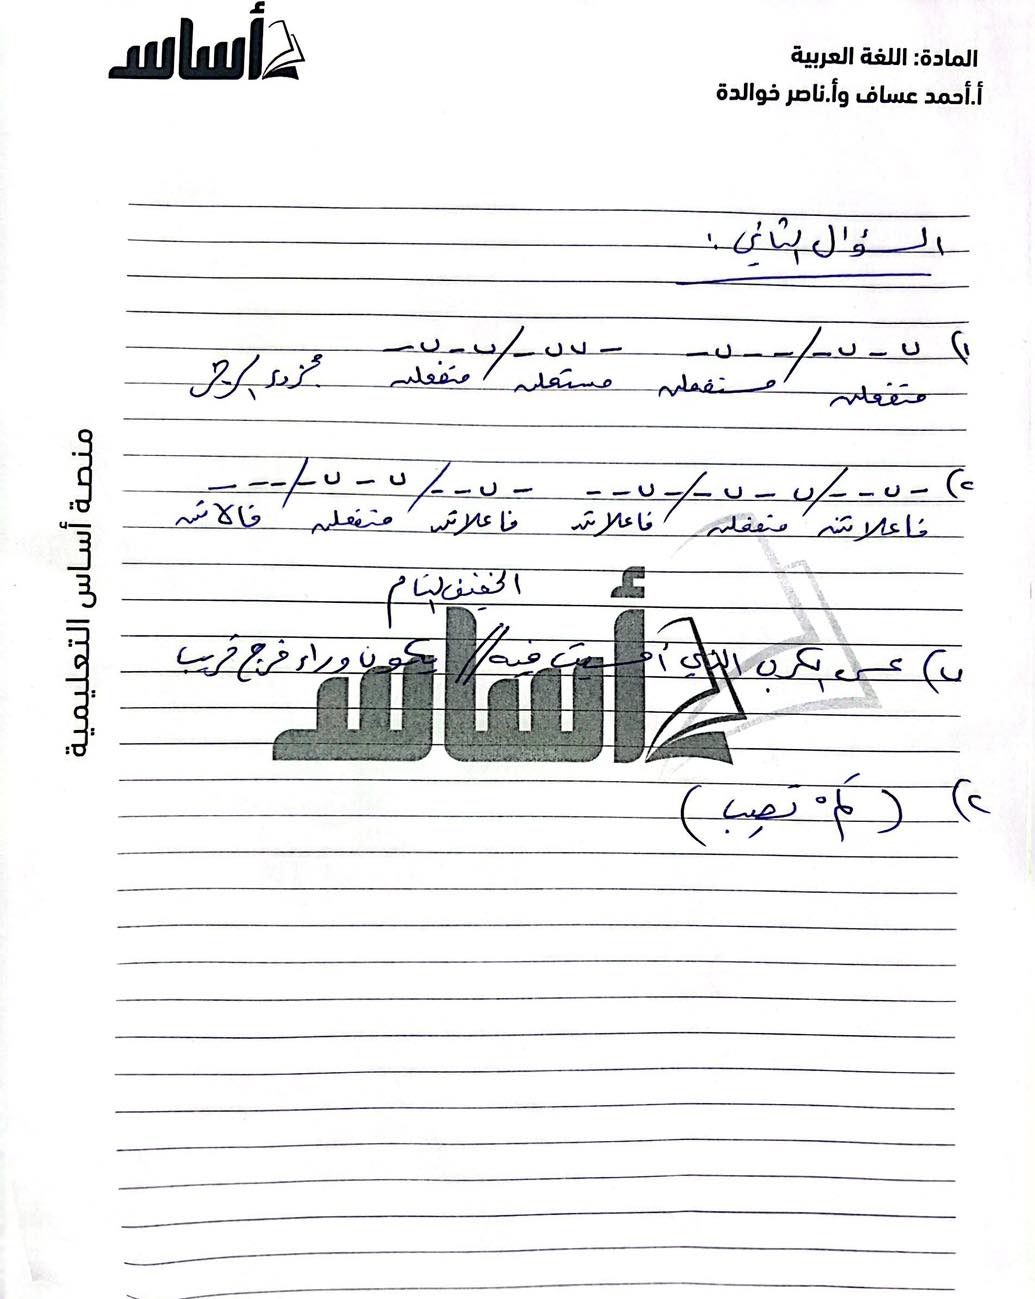 أساس
المادة: اللغة العربية
أ.أحمد عساف وأ.ناصر خوالدة
السؤال الثاني :
١) ب - ب - / - - ب -    - ب ب - / ب - ب -
متفعلن مستفعلن مستعلن متفعلن مجزوء الرجز
٢) - ب - - / ب - ب - / - ب - -    - ب - - / ب - ب - / - - -
فاعلاتن متفعلن فاعلاتن فاعلاتن متفعلن فالاتن
الخفيف التام
ب) عسى الكرب الذي أمسيت فيه // يكون وراءه فرج قريب
٢) ( لمْ تصِب )
أساس
منصة أساس التعليمية